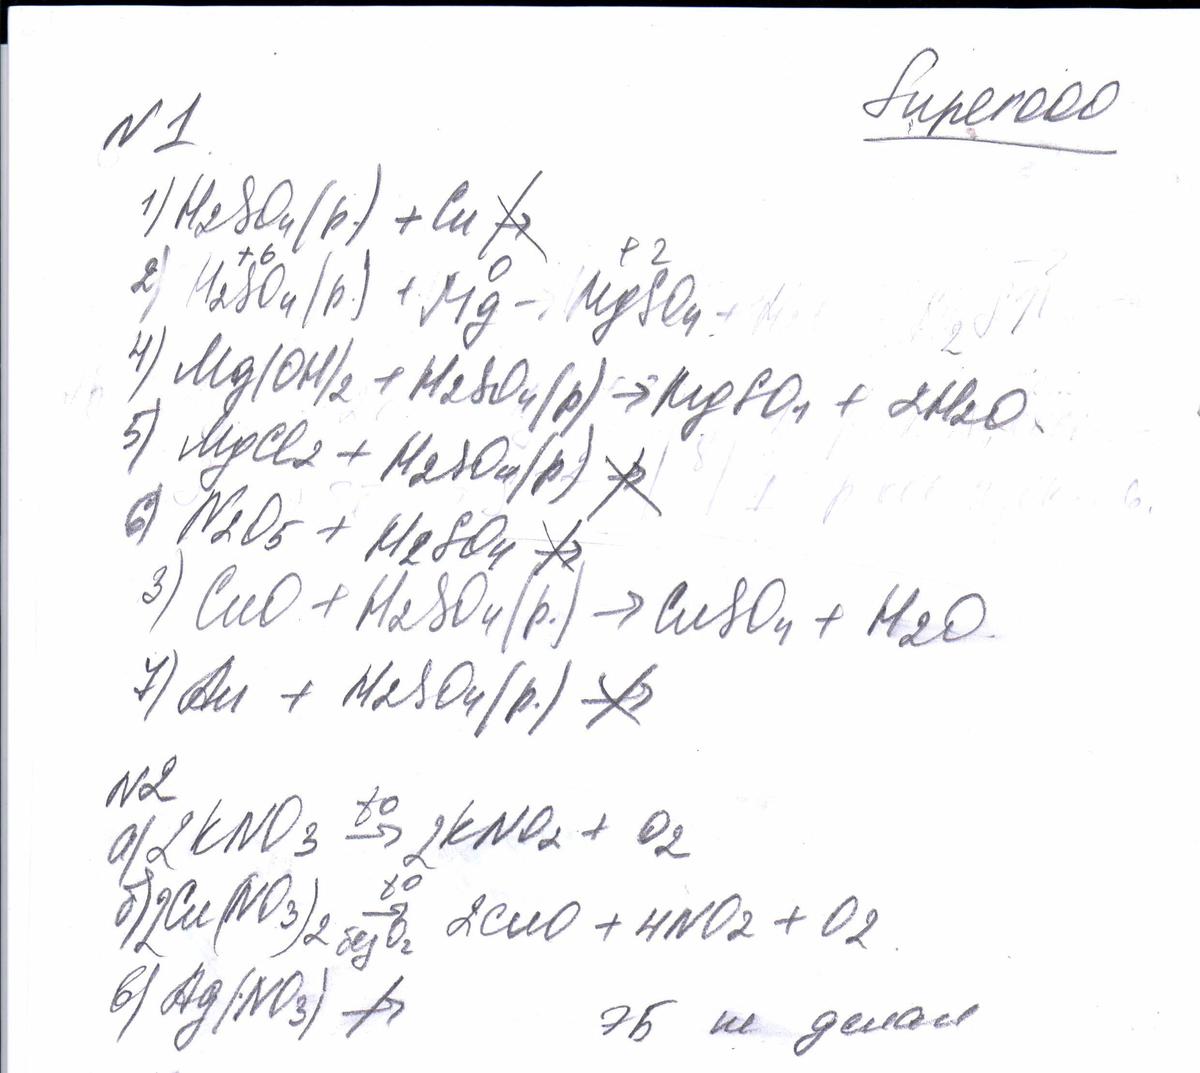 Superooo
N1
1) H2SO4(р.) + Cu ↛
+6 0 +2
2) H2SO4(р.) + Mg → MgSO4 +
4) Mg(OH)2 + H2SO4(р) → MgSO4 + 2H2O
5) MgCl2 + H2SO4(р) ↛
6) N2O5 + H2SO4 ↛
3) CuO + H2SO4(р.) → CuSO4 + H2O
7) Au + H2SO4(р.) ↛
N2
t0
а) 2KNO3 → 2KNO2 + O2
t0
б) 2Cu(NO3)2 → 2CuO + 4NO2 + O2
без O2
в) Ag(NO3) ↛
ЭБ не делал